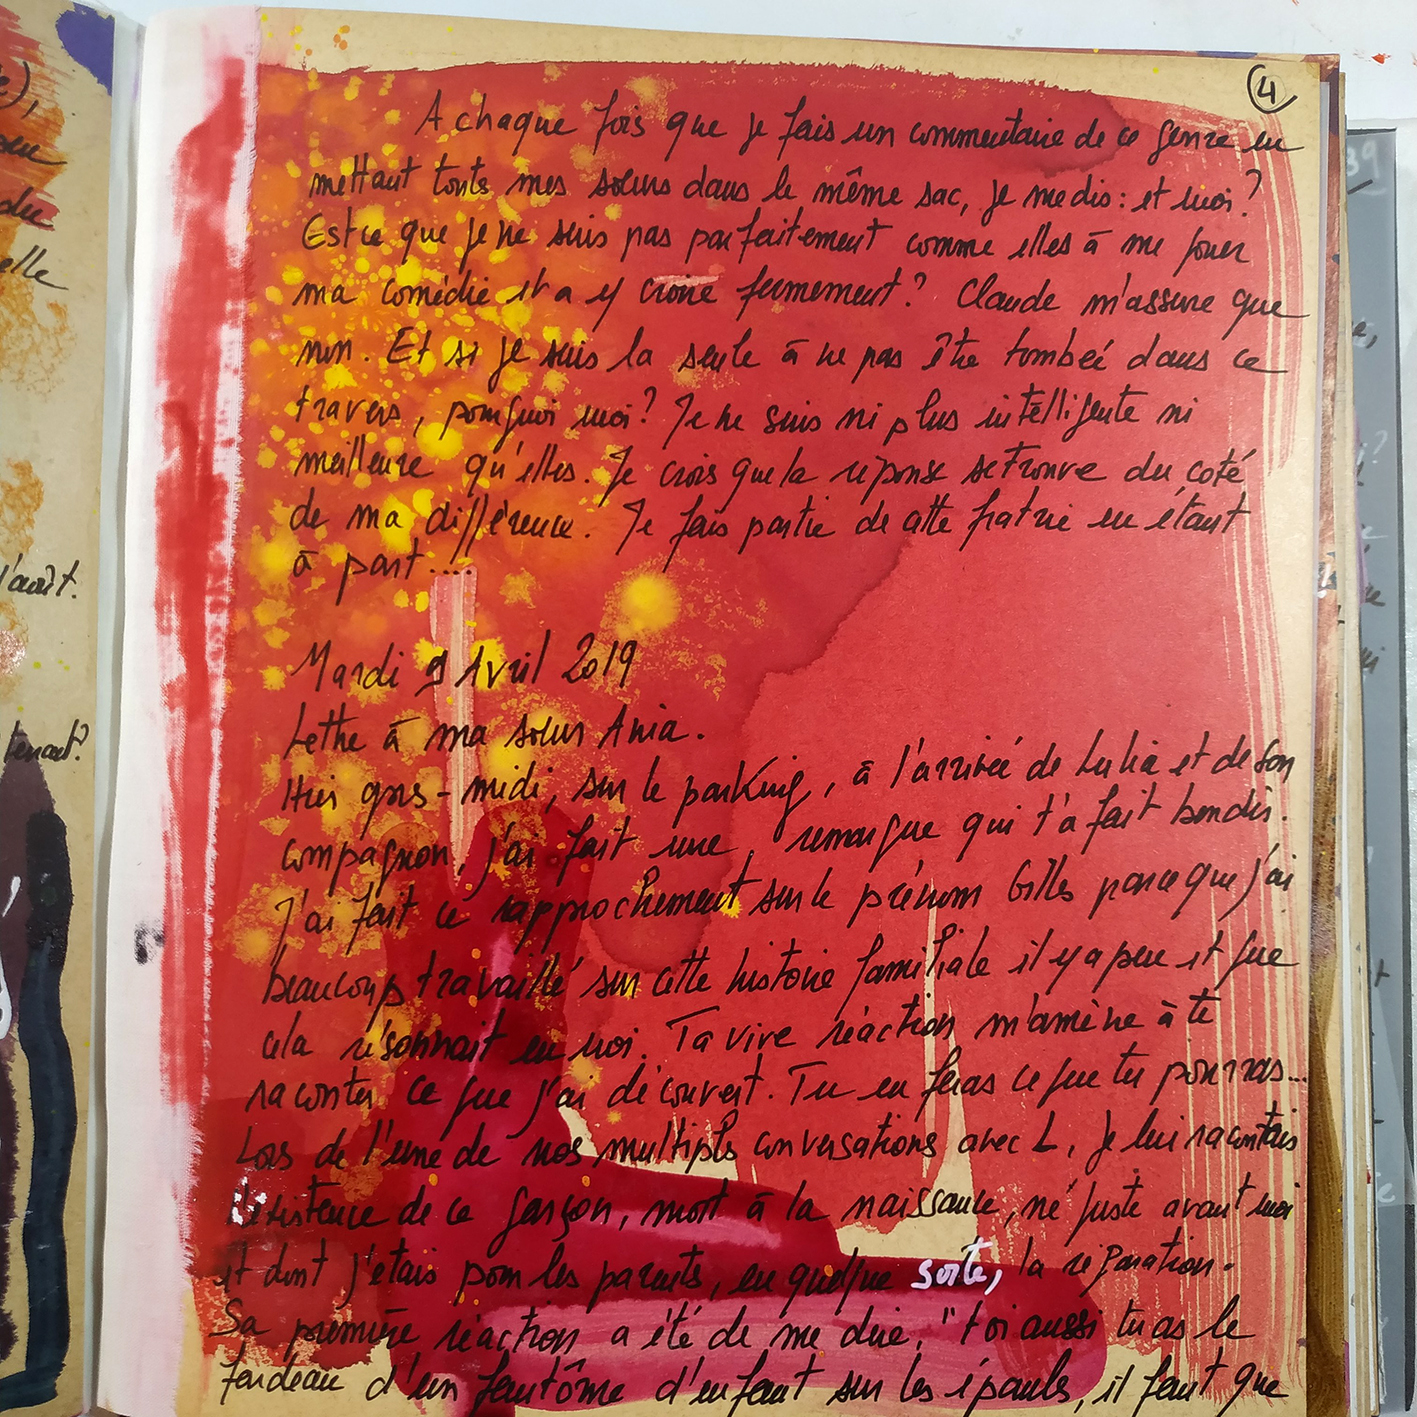 4
A chaque fois que je fais un commentaire de ce genre en
mettant touts mes soeurs dans le même sac, je me dis : et moi ?
Est ce que je ne suis pas parfaitement comme elles à me jouer
ma comédie et a y croire fermement ? Claude m'assure que
non. Et si je suis la seule à ne pas être tombée dans ce
travers, pourquoi moi ? Je ne suis ni plus intelligente ni
meilleure qu'elles. Je crois que la réponse se trouve du coté
de ma différence. Je fais partie de cette fratrie en étant
à part.....
Mardi 9 Avril 2019
Lettre à ma soeur Ania.
Hier après-midi, sur le parking, à l'arrivée de et de son
compagnon, j'ai fait une remarque qui t'a fait bondir.
J'ai fait ce rapprochement sur le prénom Gilles parce que j'ai
beaucoup travaillé sur cette histoire familiale il y a peu et que
cela résonnait en moi. Ta vive réaction m'amène à te
raconter ce que j'ai découvert. Tu en feras ce que tu pourras...
Lors de l'une de nos multiples conversations avec L, je lui racontais
l'existence de ce garçon, mort à la naissance, né juste avant moi
et dont j'étais pour les parents, en quelque sorte, la réparation.
Sa première réaction a été de me dire, "toi aussi tu as le
fardeau d'un fantôme d'enfant sur les épaules, il faut que